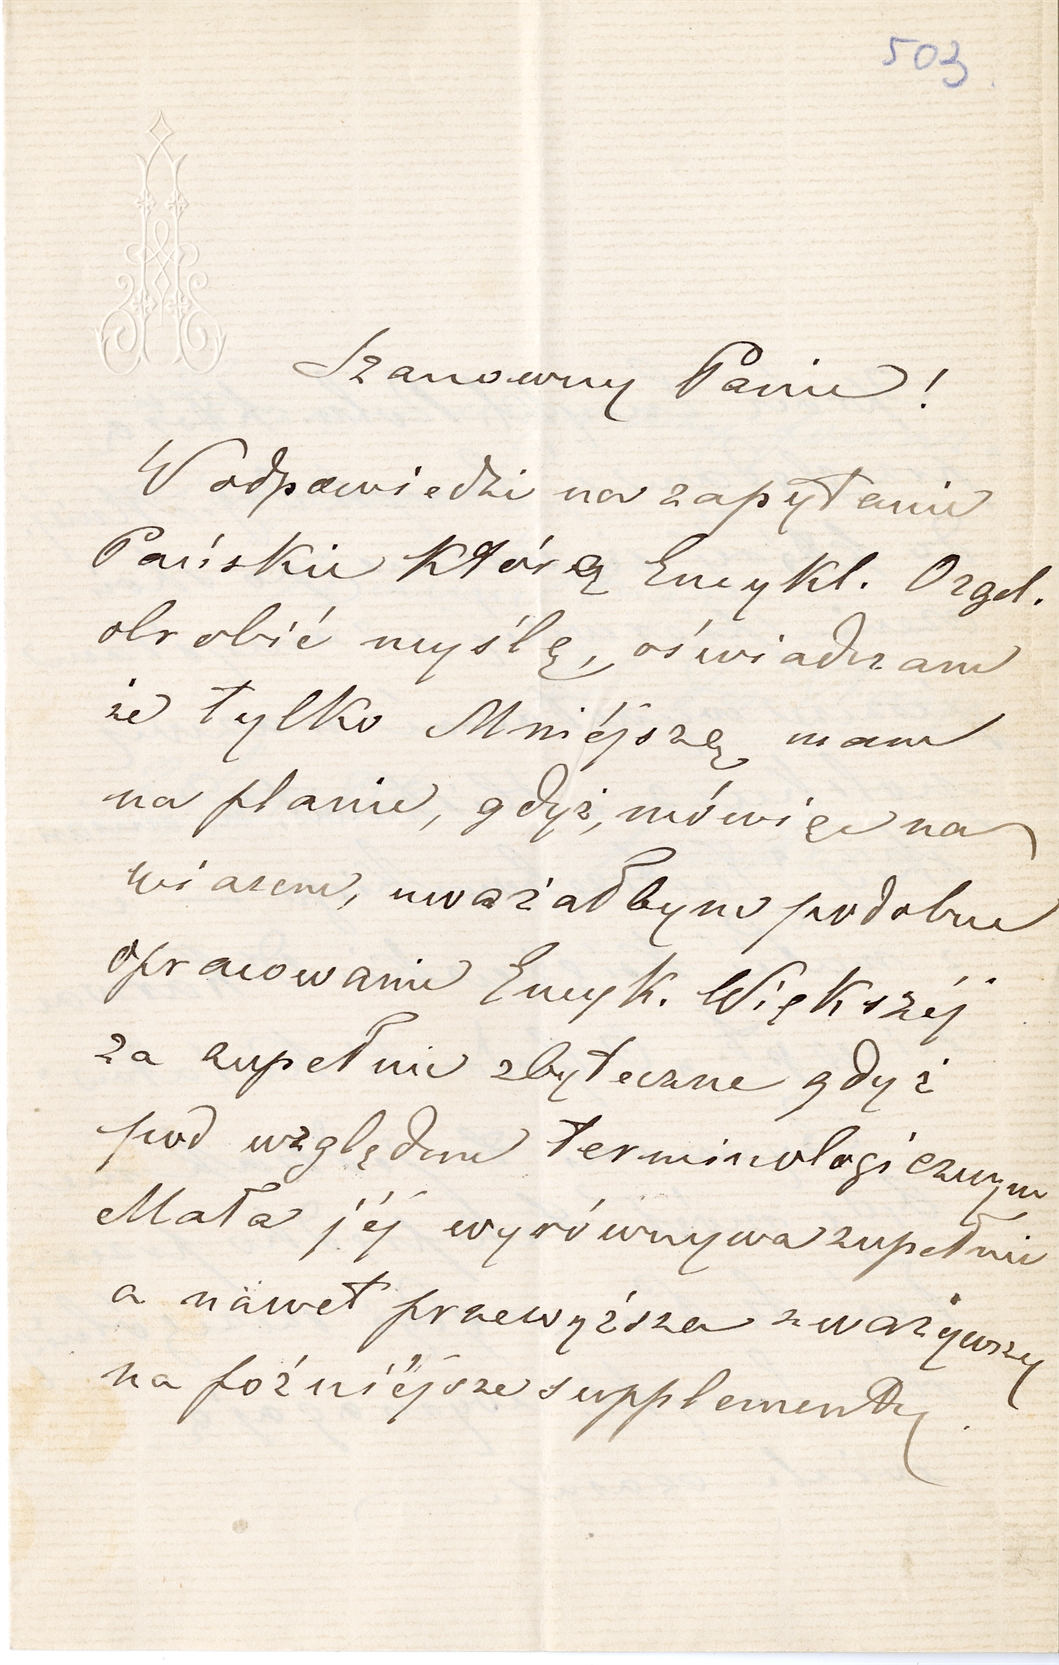 503.
Szanowny Panie!
W odpowiedzi na zapytanie
Pańskie którą Encykl. Orgel.
obrobić myślę, oświadczam
że tylko Mniéjszą mam
na planie, gdyż, mówiąc na
wiasem, uważałbym podobne
opracowanie Encyk. Większéj
za zupełnie zbyteczne gdyż
pod względem terminologicznym
Mała jéj wyrównywa zupełnie
a nawet przewyższa zważywszy
na późniéjsze supplementy.